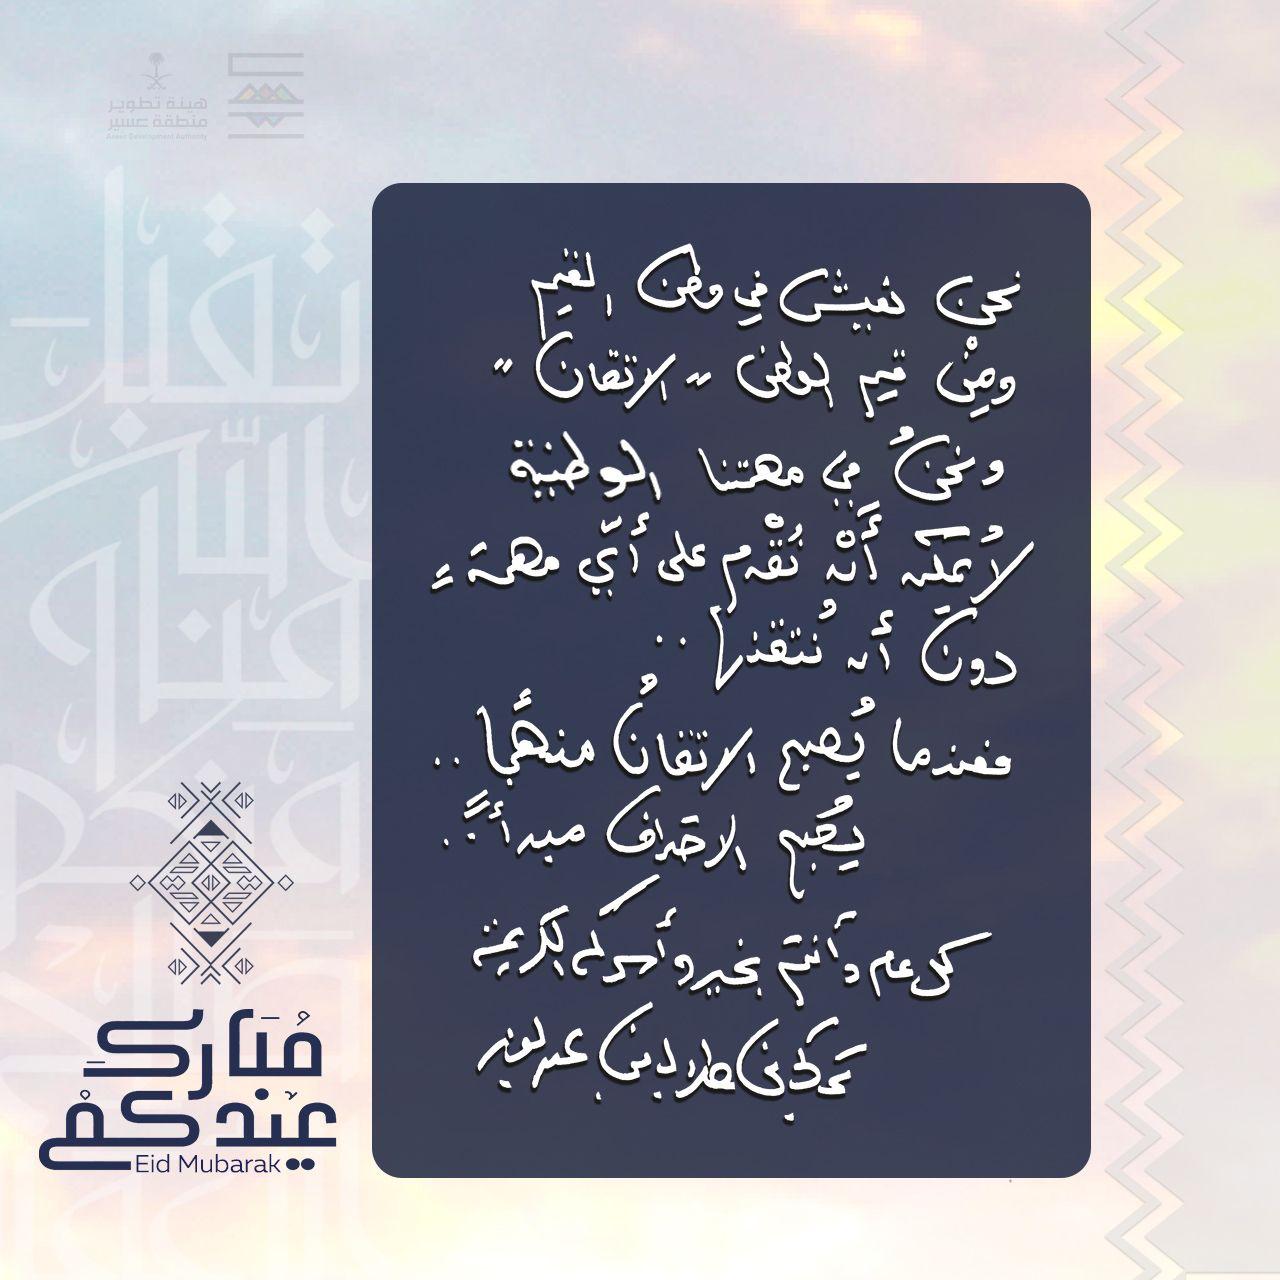 هيئة تطوير
منطقة عسير
Aseer Development Authority
نحن نعيش في وطن القيم
ومِنْ قيم الوطن "الاتقان"
ونحنُ في مهمتنا الوطنية
لا يُمكن أَنْ نُقْدم على أَيّ مهمةٍ
دون أن نُتقنها ..
فعندما يُصبح الاتقانُ منهجًا ..
يُصبح الاحتراف مبدأً ..
كل عام وأنتم بخير وأسركم الكريمة
تركي بن طلال بن عبدالعزيز
تقبل
الله
منا و
منكم
صالح
مُبَارك
عيدكم
Eid Mubarak